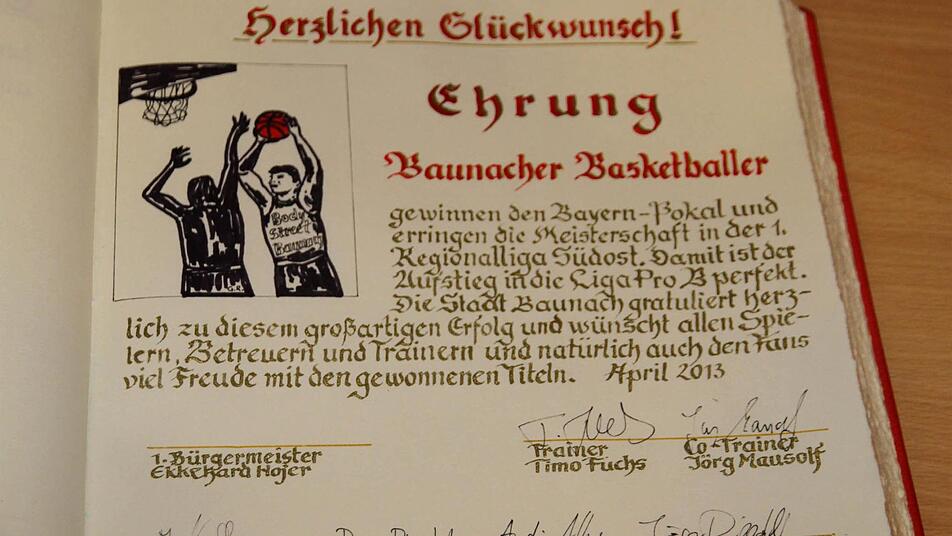 Herzlichen Glückwunsch!
Ehrung
Baunacher Basketballer
Body
Street
Baunach
gewinnen den Bayern-Pokal und
erringen die Meisterschaft in der 1.
Regionalliga Südost. Damit ist der
Aufstieg in die Liga Pro B perfekt.
Die Stadt Baunach gratuliert herz-
lich zu diesem großartigen Erfolg und wünscht allen Spie-
lern, Betreuern und Trainern und natürlich auch den Fans
viel Freude mit den gewonnenen Titeln. April 2013
1. Bürgermeister
Ekkehard Hojer
Trainer
Timo Fuchs
Co-Trainer
Jörg Mausolf